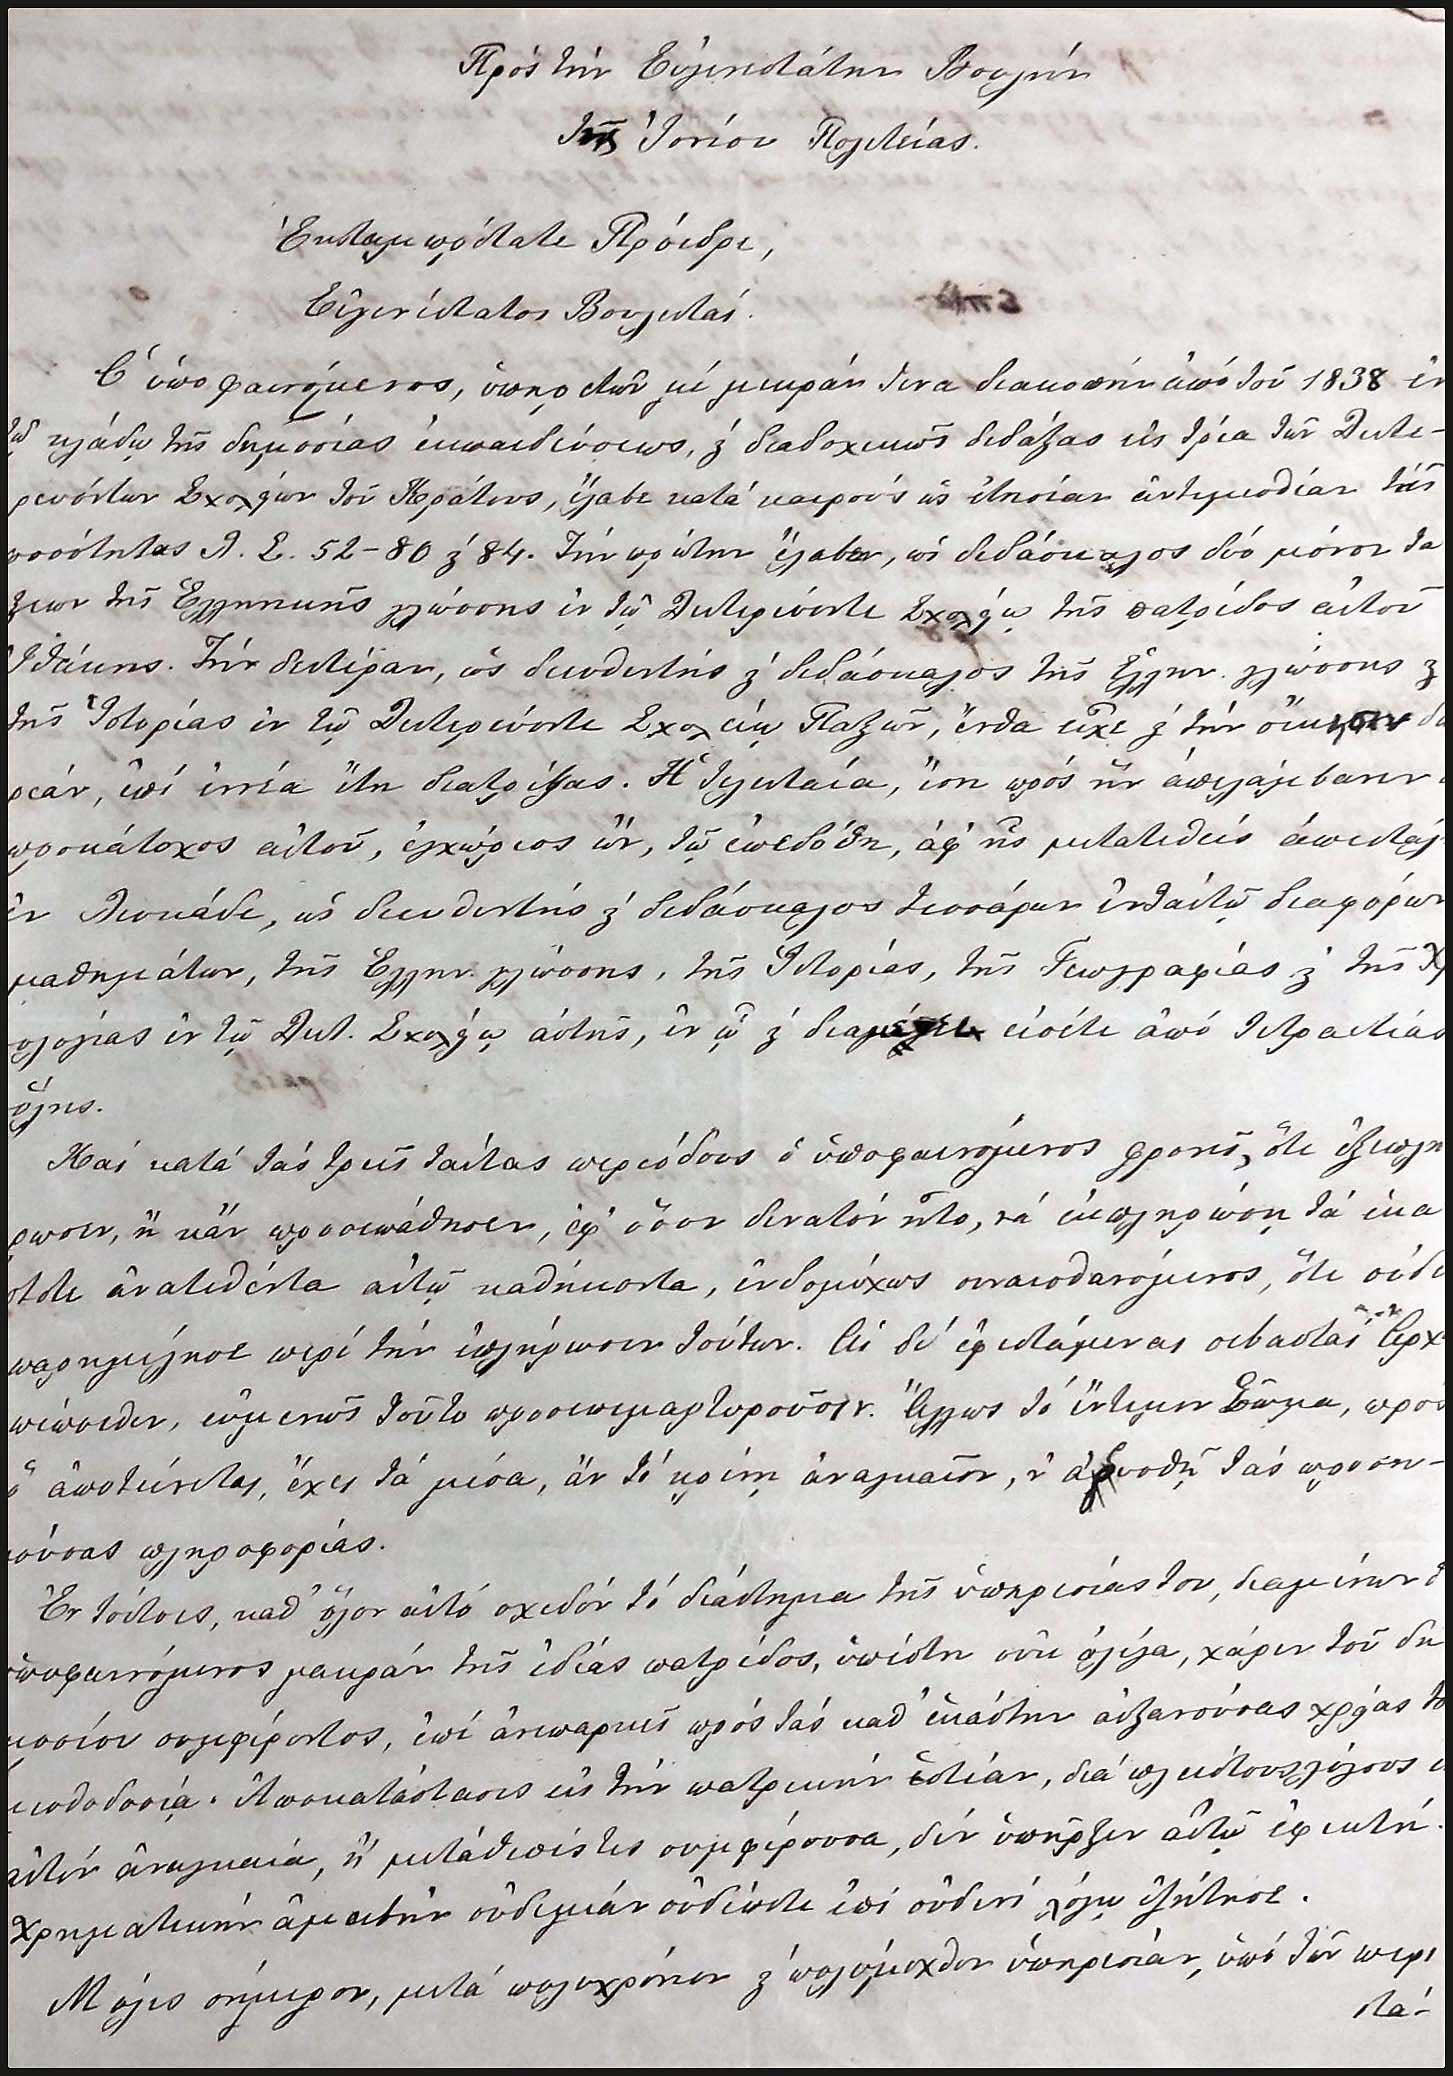 Πρὸς τὴν Εὐγενεστάτην Βουλὴν
τῆς Ἰονίου Πολιτείας.
Ἐκλαμπρότατε Πρόεδρε,
Εὐγενέστατοι Βουλευταί.
Ὁ ὑποφαινόμενος, ὑπηρετῶν μὲ μικράν τινα διακοπὴν ἀπὸ τοῦ 1838 ἐν
τῷ κλάδῳ τῆς δημοσίας ἐκπαιδεύσεως, ϗ διαδοχικῶς διδάξας εἰς τρία τῶν Δευτε-
ρευόντων Σχολείων τοῦ Κράτους, ἔλαβε κατὰ καιροὺς ὡς ἐτησίαν ἀντιμισθίαν τὰς
ποσότητας Λ. Σ. 52-80 ϗ 84. Τὴν πρώτην ἔλαβεν, ὡς διδάσκαλος δύο μόνον τά
ξεων τῆς Ἑλληνικῆς γλώσσης ἐν τῷ Δευτερεύοντι Σχολείῳ τῆς πατρίδος αὐτοῦ
Ἰθάκης. Τὴν δευτέραν, ὡς διευθυντὴς ϗ διδάσκαλος τῆς Ἑλλην. γλώσσης ϗ
τῆς Ἱστορίας ἐν τῷ Δευτερεύοντι Σχολείῳ Παξῶν, ἔνθα εἶχε ϗ τὴν οἴκησιν δω
ρεάν, ἐπὶ ἐννέα ἔτη διατρίψας. Ἡ τελευταία, ἴση πρὸς ἣν ἀπελάμβανεν ὁ
προκάτοχος αὐτοῦ, ἐγχώριος ὤν, τῷ ἐπεδόθη, ἀφ' ἧς μετατεθεὶς ἀπεστάλη
ἐν Λευκάδι, ὡς διευθυντὴς ϗ διδάσκαλος τεσσάρων ἐνταυτῷ διαφόρων
μαθημάτων, τῆς Ἑλλην. γλώσσης, τῆς Ἱστορίας, τῆς Γεωγραφίας ϗ τῆς Χρ
ολογίας ἐν τῷ Δευτ. Σχολείῳ αὐτῆς, ἐν ᾧ ϗ διαμένει εἰσέτι ἀπὸ τετραετίας
ὅλης.
Καὶ κατὰ τὰς τρεῖς ταύτας περιόδους ὁ ὑποφαινόμενος φρονεῖ, ὅτι ἐξεπλή
ρωσεν, ἢ κἂν προσεπάθησεν, ἐφ' ὅσον δυνατὸν ἦτο, νὰ ἐκπληρώσῃ τὰ ἑκά
στοτε ἀνατεθέντα αὐτῷ καθήκοντα, ἐνδομύχως συναισθανόμενος, ὅτι οὐδὲ
παρημέλησε περὶ τὴν ἐκπλήρωσιν τούτων. Αἱ δὲ ἐφιστάμεναι σεβασταὶ Ἀρχ
πέποιθεν, εὐμενῶς τοῦτο προσεπιμαρτυροῦσιν. Ἄλλως τὸ ἔντιμον Σῶμα, πρὸς
ὃ ἀποτείνεται, ἔχει τὰ μέσα, ἂν τὸ κρίνῃ ἀναγκαῖον, ν' ἀρυσθῇ τὰς προση-
κούσας πληροφορίας.
Ἐν τούτοις, καθ' ὅλον αὐτὸ σχεδὸν τὸ διάστημα τῆς ὑπηρεσίας του, διαμένων ὁ
ὑποφαινόμενος μακρὰν τῆς ἰδίας πατρίδος, ὑπέστη οὐκ ὀλίγα, χάριν τοῦ δη
μοσίου συμφέροντος, ἐπὶ ἀνεπαρκεῖ πρὸς τὰς καθ' ἑκάστην αὐξανούσας χρείας το
μισθοδοσίᾳ. Ἀποκατάστασις εἰς τὴν πατρικὴν ἑστίαν, διὰ πλείστους λόγους
αὐτὸν ἀναγκαία, ἢ μετάθεσίς τις συμφέρουσα, δὲν ὑπῆρξεν αὐτῷ ἐφικτή.
Χρηματικὴν ἀμοιβὴν οὐδεμίαν οὐδέποτε ἐπὶ οὐδενὶ λόγῳ ἐζήτησε.
Μόλις σήμερον, μετὰ πολυχρόνιον ϗ πολύμοχθον ὑπηρεσίαν, ὑπὸ τῶν περι
στά-